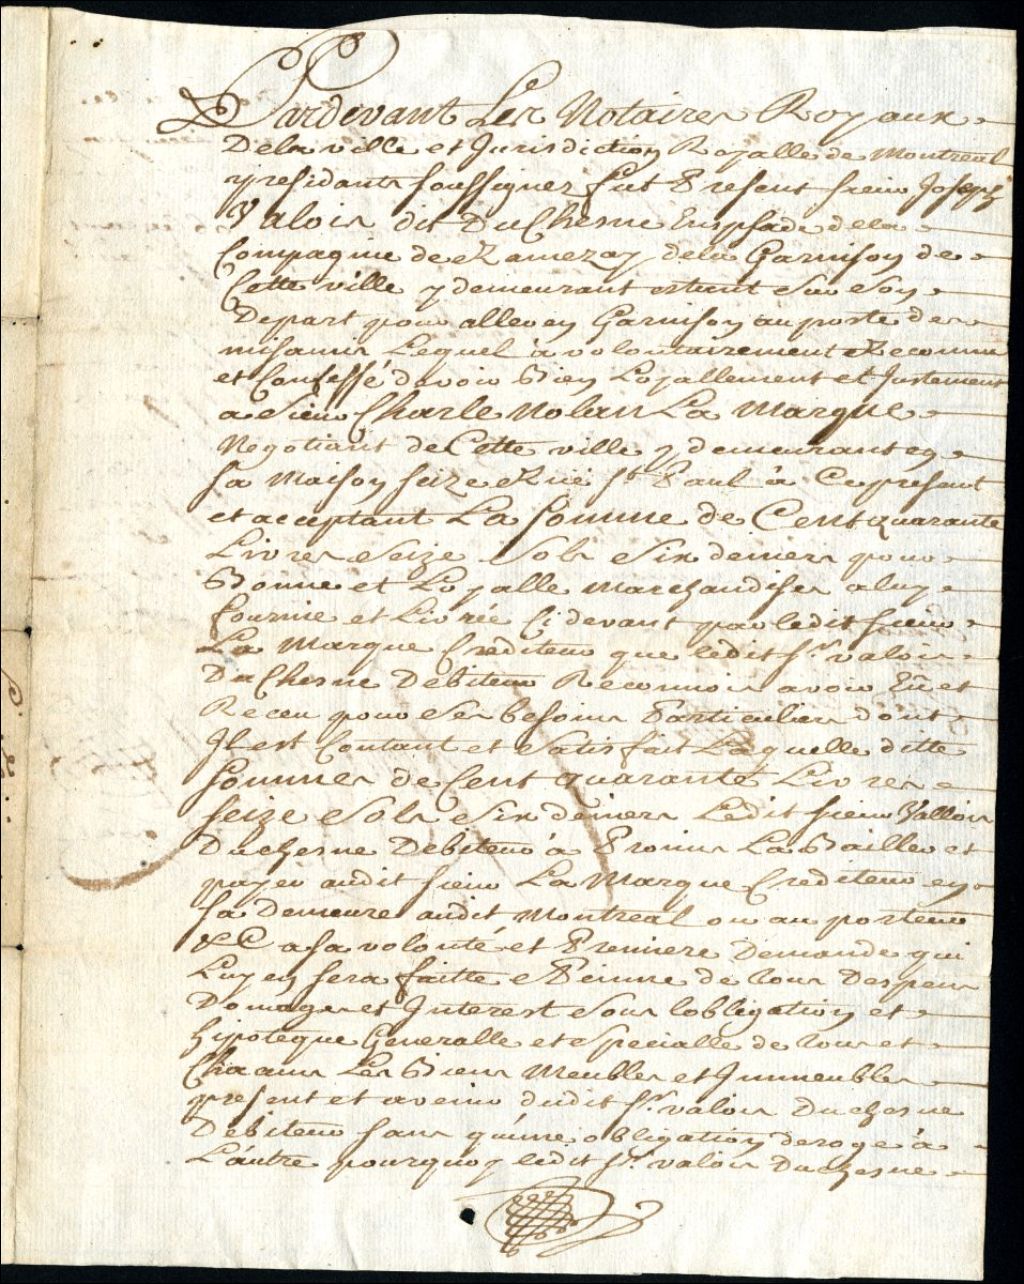 Pardevant Les Notaires Royaux
Dela ville et Jurisdiction Royalle de Montreal
y residants soussignez fut Present sieur Joseph
Valois dit DuChesne Enspsade dela
Compagnie de Ramezay dela Garnison de
Cette ville y demeurant estant sur son
Depart pour aller en Garnison au poste des
misamis Lequel à volontairement Reconnu
et Confessé devoir Bien Loyallement et Justement
a sieur Charle Nolan La Marque
Negotiant de Cette ville y demeurant en
sa Maison seize Rüe st Paul à Ce present
et acceptant La somme de Cent quarante
Livres seize sols six deniers pour
Bonne et Loyalle Marchandises a luy
fournie et Livrée Ci devant par ledit sieur
La Marque Crediteur que ledit sr valois
DuChesne Debiteur Reconnois avoir Eü et
Receu pour ses besoins Particuliers dont
Il est Contant et satisfait Laquelle ditte
sommes de Cent quarante Livres
seize sols six deniers Ledit sieur Vallois
Duchesne Debiteur à Promis La Bailler et
payer audit sieur La Marque Crediteur en
sa Demeure audit Montreal ou au porteur
&C a sa volonté et Premiere Demande qui
Luy en sera faitte a Peinne de tous Despens
Domages et Interest sous lobligation et
hipoteque Generalle et specialle de tous et
Chacuns Les Biens Meubles et Immeubles
present et avenir dudit sr valois Duchesne
Debiteur sans qu'une obligation deroge à
L'autre pourquoy ledit sr valois Duchesne